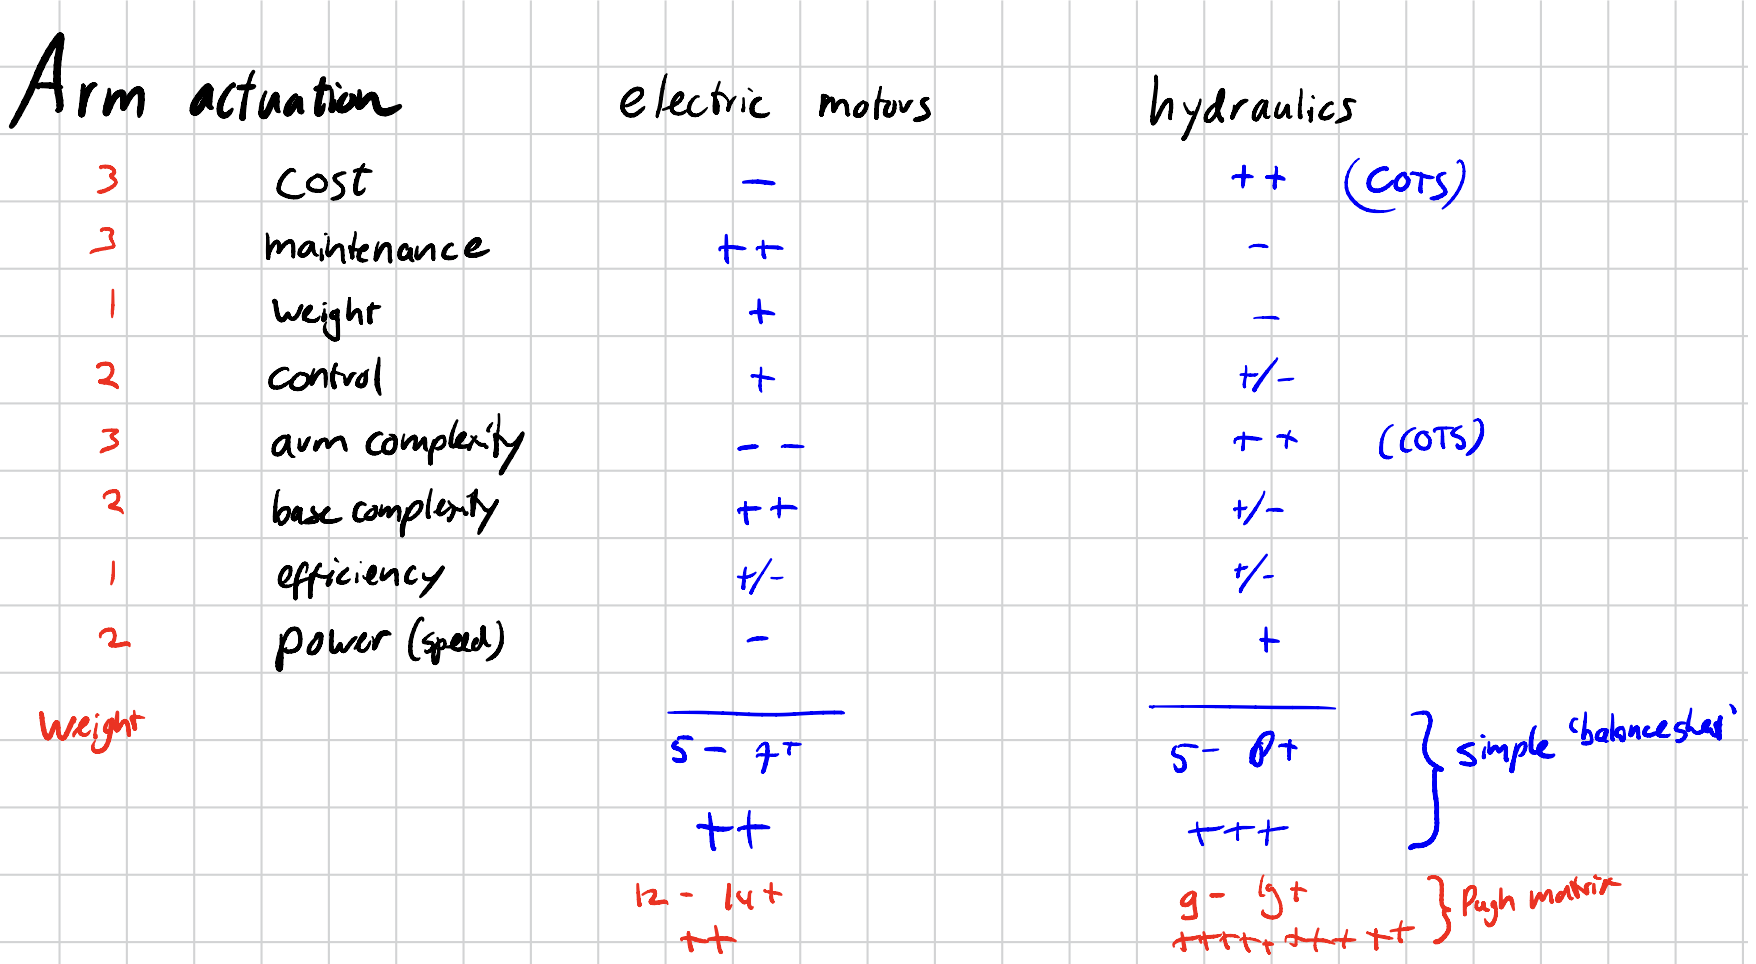 Arm actuation electric motors hydraulics
3 cost - ++ (COTS)
3 maintenance ++ -
1 weight + -
2 control + +/-
3 arm complexity -- ++ (COTS)
2 base complexity ++ +/-
1 efficiency +/- +/-
2 power (speed) - +
Weight
5- 7+ 5- 8+ } simple 'balance sheet'
++ +++
12- 14+ 9- 19+ } Pugh matrix
++ ++++++++++